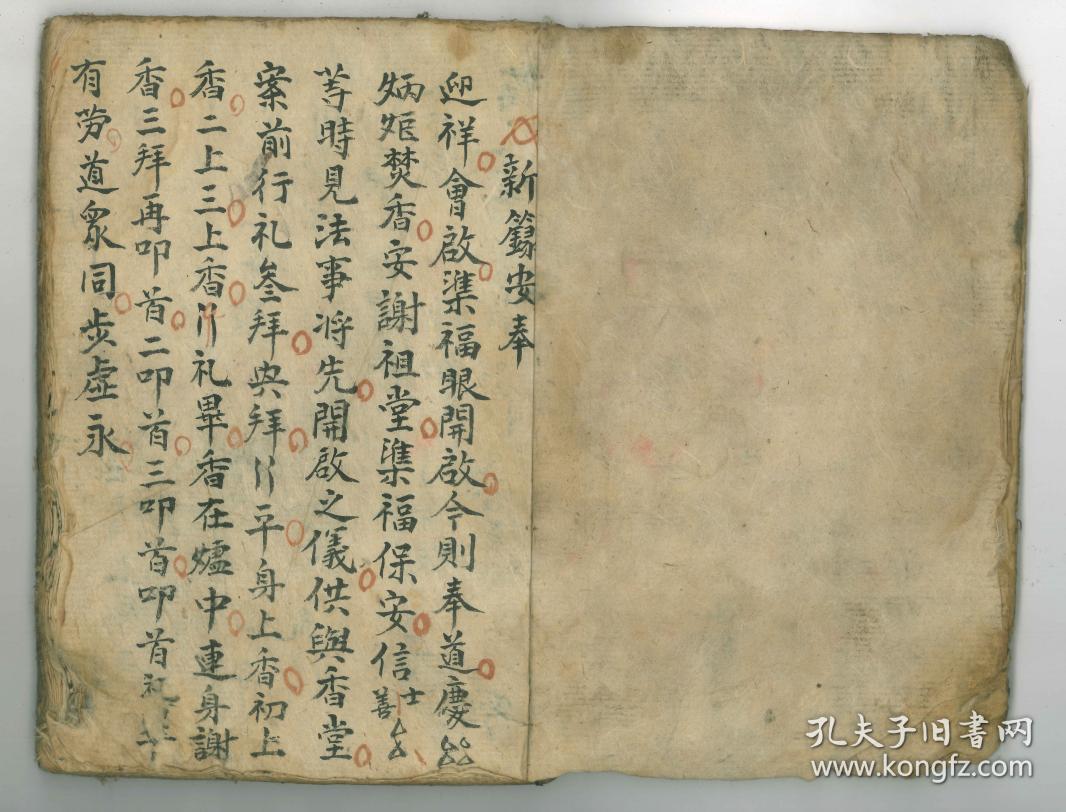 新籙安奉
迎祥會啟集福眼開啟今則奉道慶
焚香安謝祖堂集福保安信士善
等時見法事将先開啟之儀供與香堂
案前行礼叁拜與拜平身上香初上
香二上三上香礼畢香在爐中連身謝
香三拜再叩首二叩首三叩首叩首礼畢平
有劳道眾同步虛永
孔夫子旧书网
www.kongfz.com